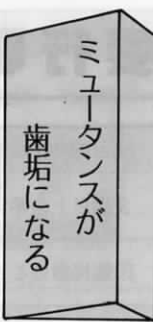 ミュータンスが
歯垢になる